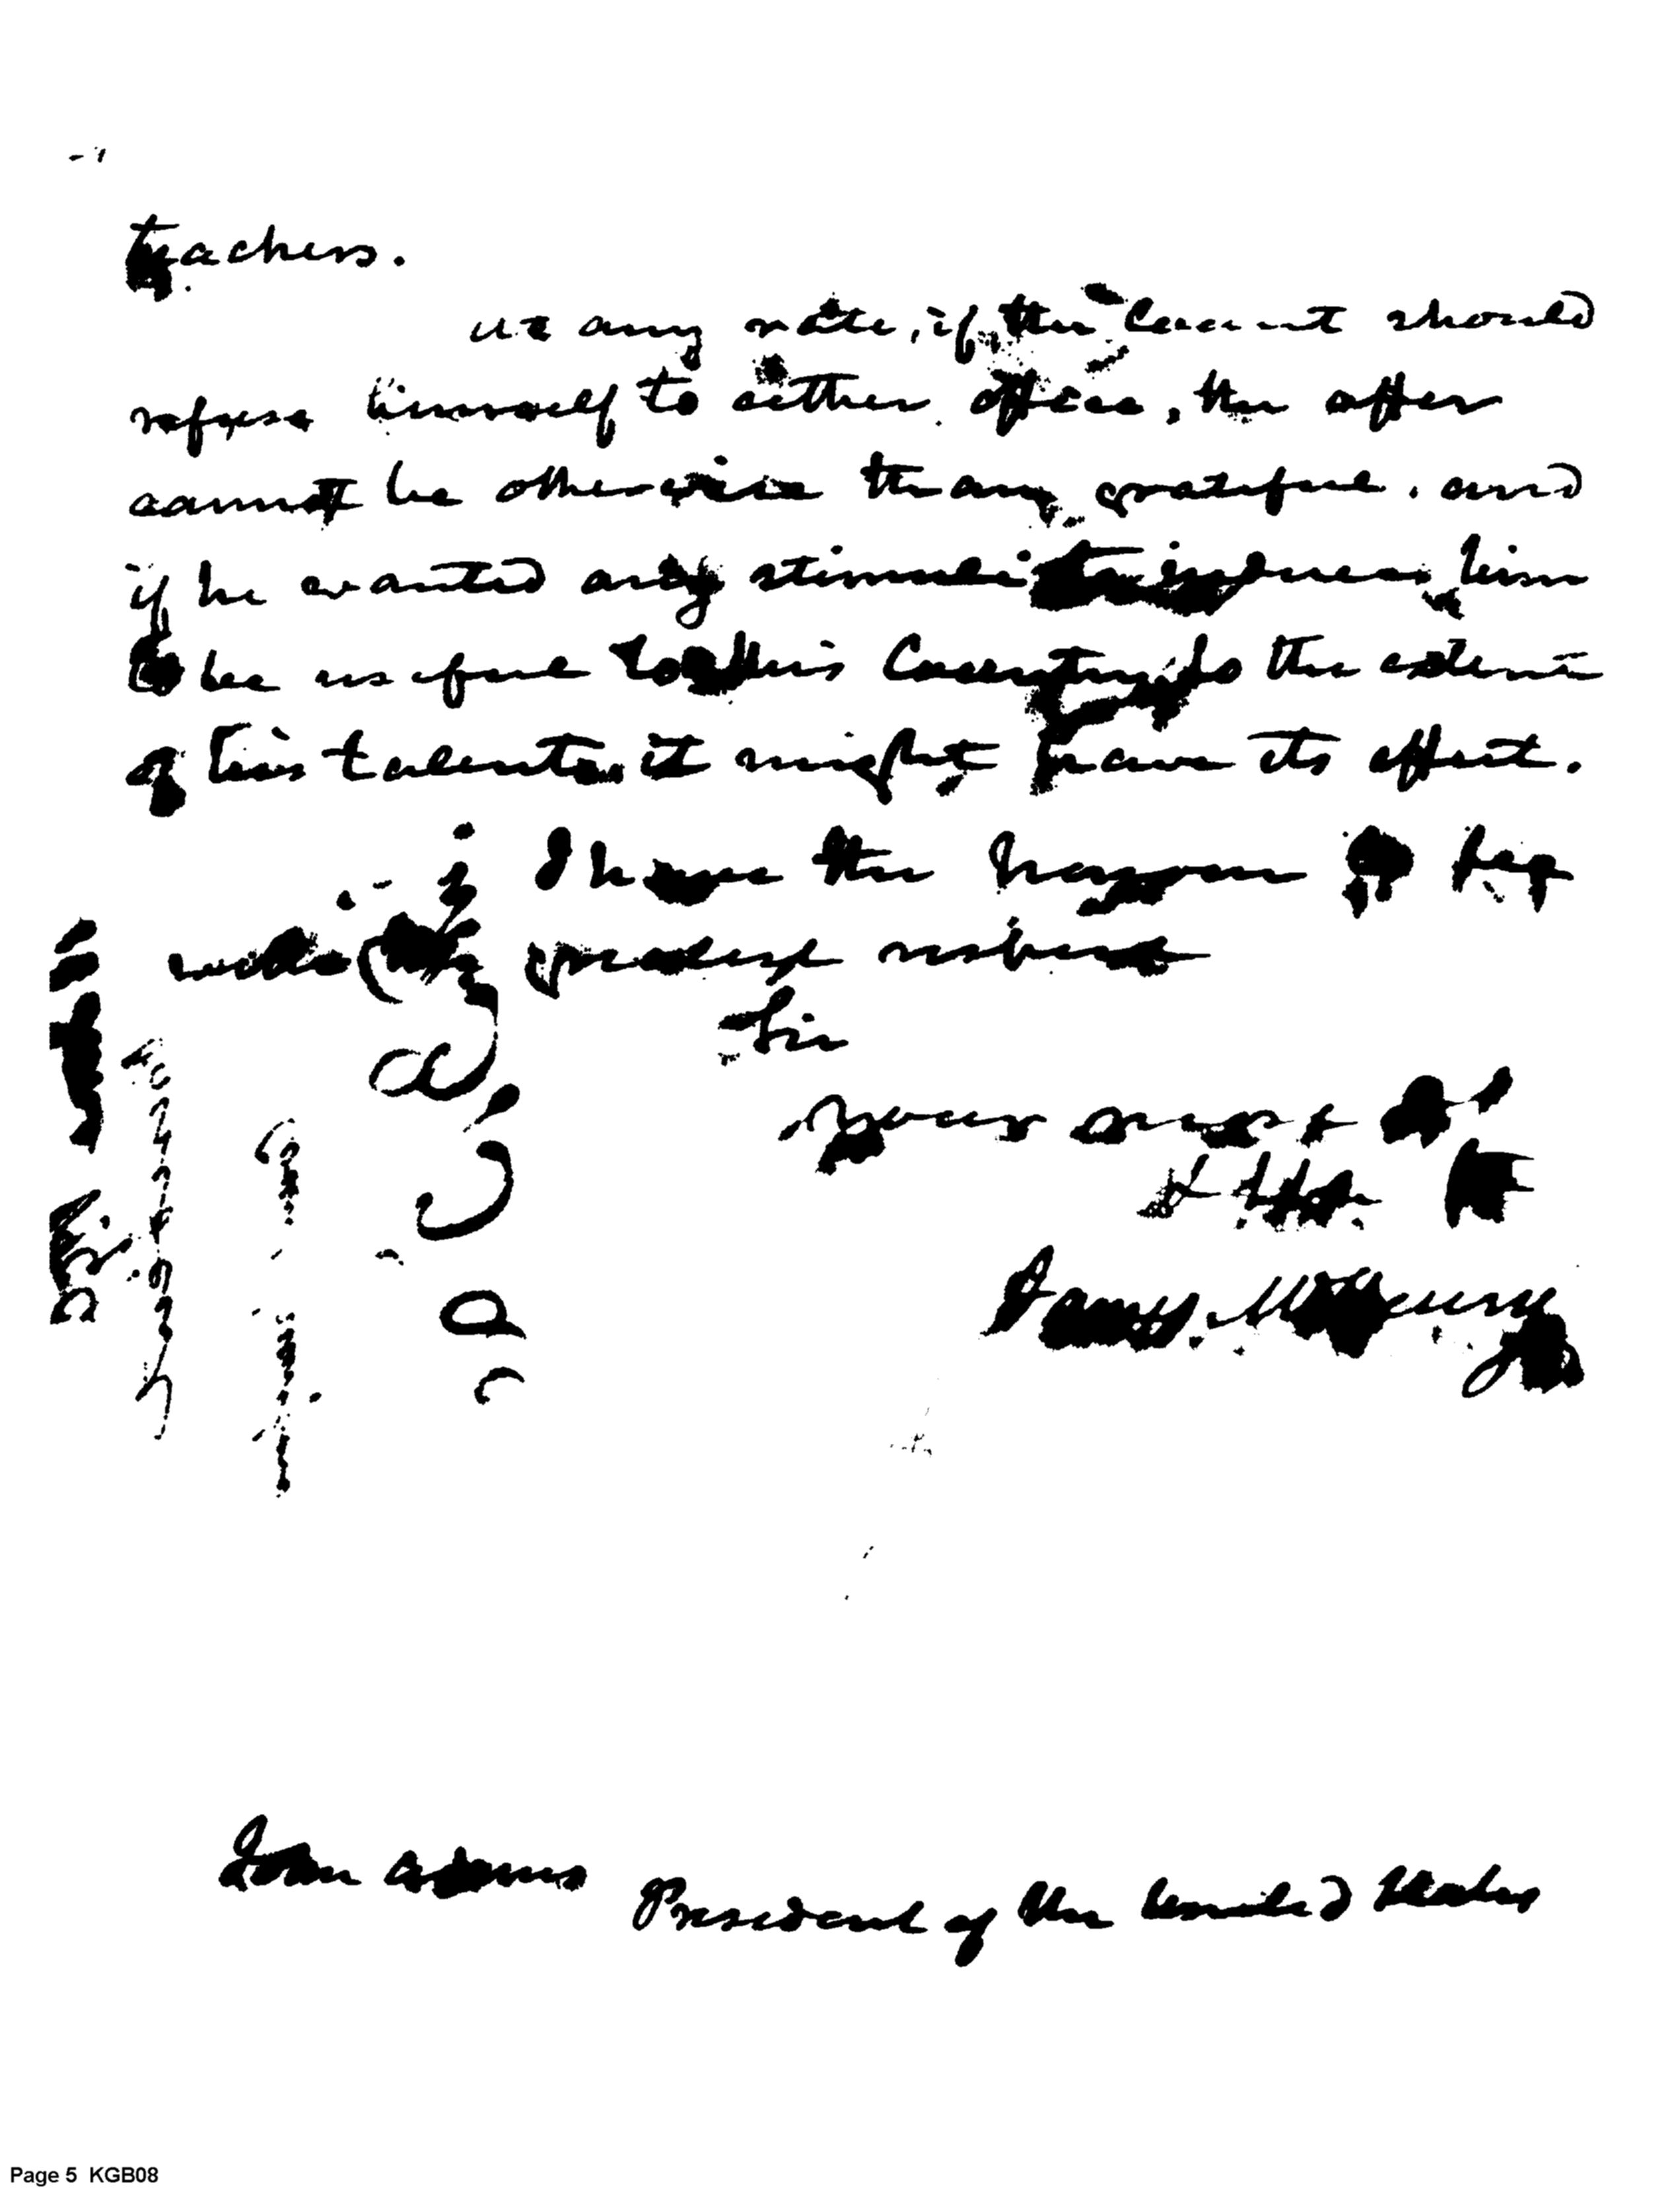 teachers.
at any rate, if the Count should
refuse himself to either office, the offer
cannot be otherwise than grateful, and
if he wanted any stimuli to induce him
to be useful to this Country to the extent
of his talents it might have its effect.
I have the honour to be
with the greatest respect
Sir
Your most Ob
& Hble
James McHenry
John Adams President of the United States
Page 5 KGB08